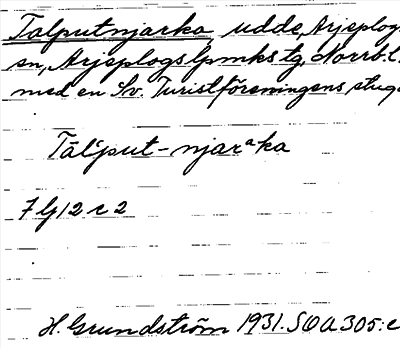 Talputnjarka, udde, Arjeplog
sn, Arjeplogs lpmks tg, Norrb. l.
med en Sv. Turistföreningens stuga
Tālput-njarᵃka
7 lj 12 c 2
H. Grundström 1931. SOA 305: c